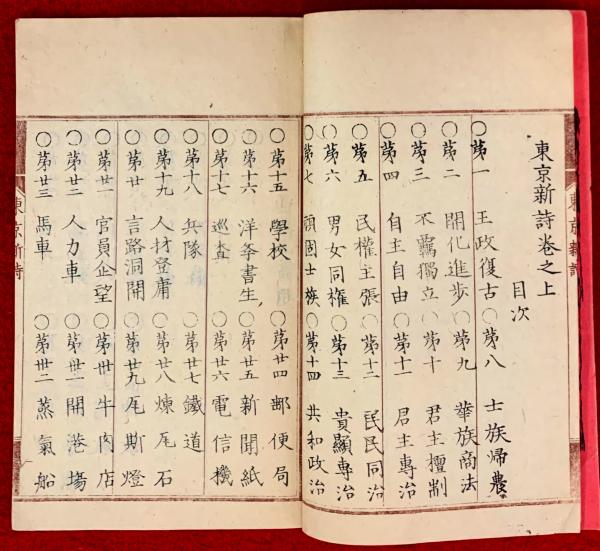 東京新詩卷之上
目次
○第一 王政復古 ○第八 士族帰農
○第二 開化進歩 ○第九 華族商法
○第三 不羈獨立 ○第十 君主擅制
○第四 自主自由 ○第十一 君主專治
○第五 民權主張 ○第十二 民民同治
○第六 男女同権 ○第十三 貴顯專治
○第七 頑固士族 ○第十四 共和政治
○第十五 學校 ○第廿四 郵便局
○第十六 洋学書生 ○第廿五 新聞紙
○第十七 巡査 ○第廿六 電信機
○第十八 兵隊 ○第廿七 鐵道
○第十九 人材登庸 ○第廿八 煉瓦石
○第廿 言路洞開 ○第廿九 瓦斯燈
○第廿一 官員企望 ○第卅 牛肉店
○第廿二 人力車 ○第卅一 開港場
○第廿三 馬車 ○第卅二 蒸氣船
東京新詩